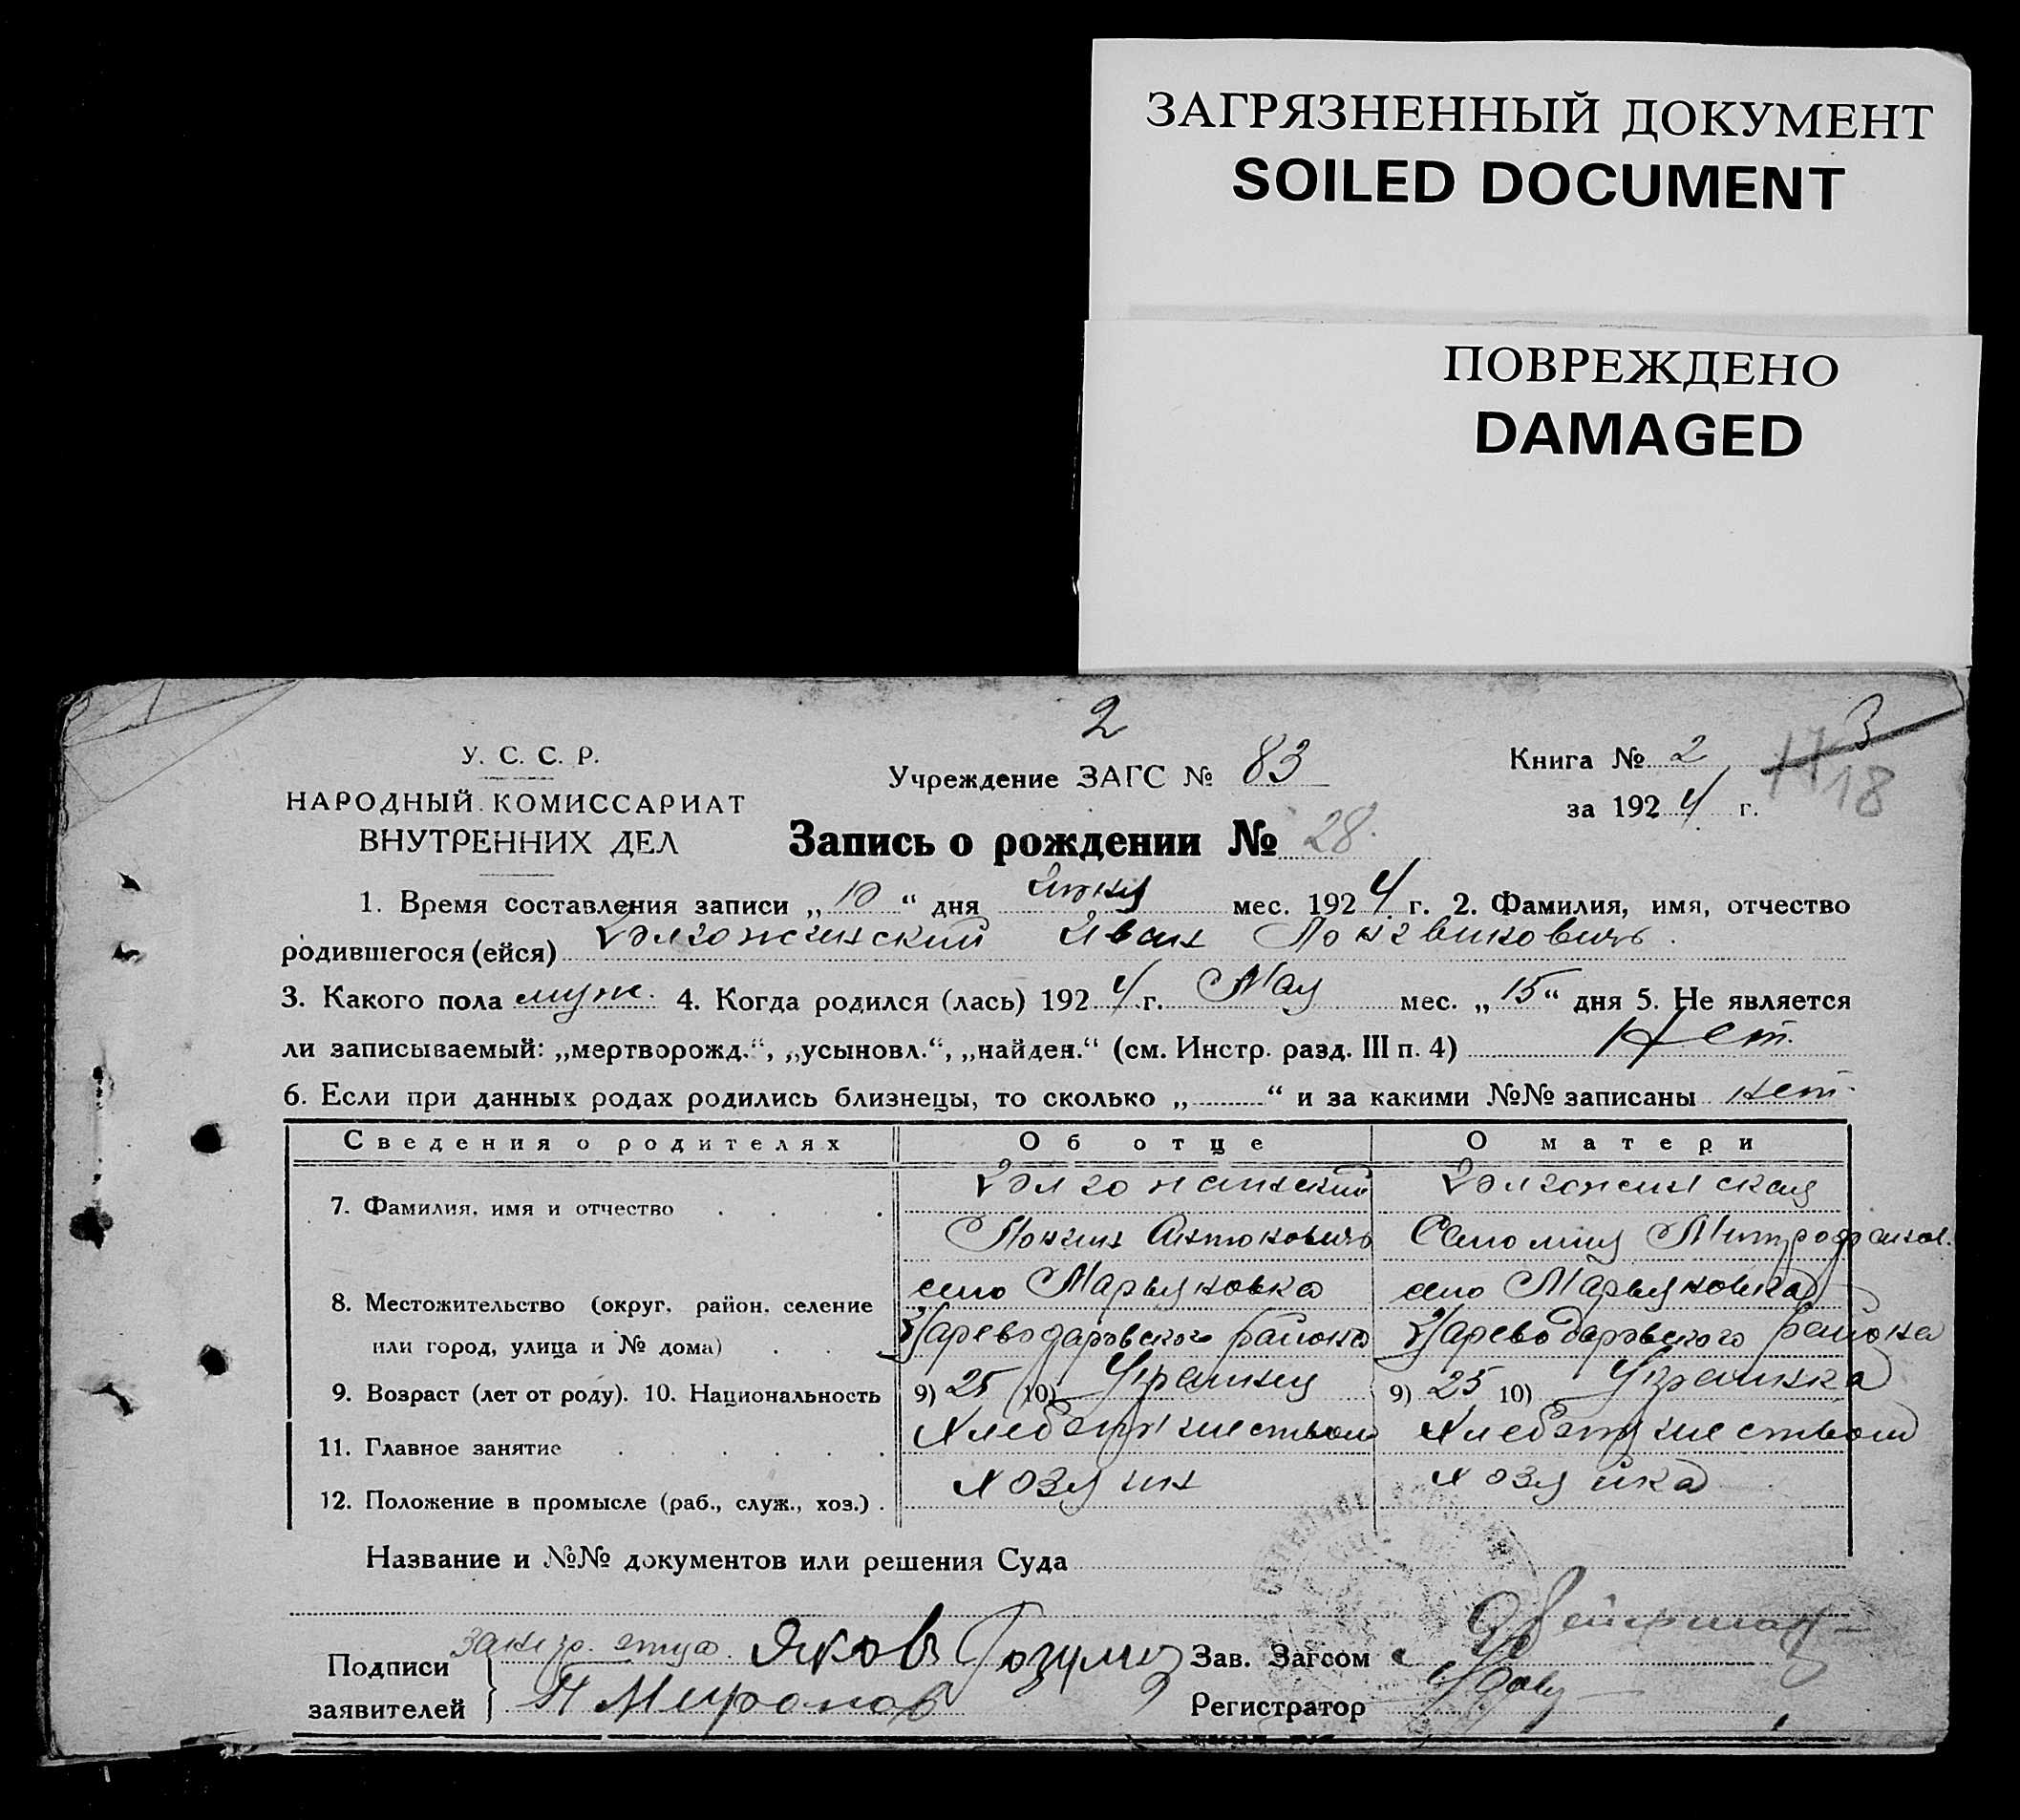 ЗАГРЯЗНЕННЫЙ ДОКУМЕНТ
SOILED DOCUMENT
ПОВРЕЖДЕНО
DAMAGED
2
3
У. С. С. Р.
НАРОДНЫЙ КОМИССАРИАТ
ВНУТРЕННИХ ДЕЛ
Учреждение ЗАГС № 83
Книга № 2
17 18
за 1924 г.
Запись о рождении № 28.
1. Время составления записи „10“ дня июня мес. 1924 г. 2. Фамилия, имя, отчество
родившегося (ейся) Долгожинский Иван Логвинович.
3. Какого пола муж. 4. Когда родился (лась) 1924 г. Мая мес. „15“ дня 5. Не является
ли записываемый: „мертворожд.“, „усыновл.“, „найден.“ (см. Инстр. разд. III п. 4) Нет.
6. Если при данных родах родились близнецы, то сколько „ “ и за какими №№ записаны нет.
Сведения о родителях Об отце О матери
7. Фамилия, имя и отчество
Антонович
Митрофанов.
8. Местожительство (округ, район, селение
или город, улица и № дома)
село Марьяновка
Цареводаровского района
село Марьяновка
Цареводаровского района
9. Возраст (лет от роду). 10. Национальность 9) 25 10) Украинец 9) 25 10) Украинка
11. Главное занятие
12. Положение в промысле (раб., служ., хоз.) хозяин хозяйка
Название и №№ документов или решения Суда
Подписи
заявителей
отца Яков
Миронов
Зав. Загсом
Регистратор